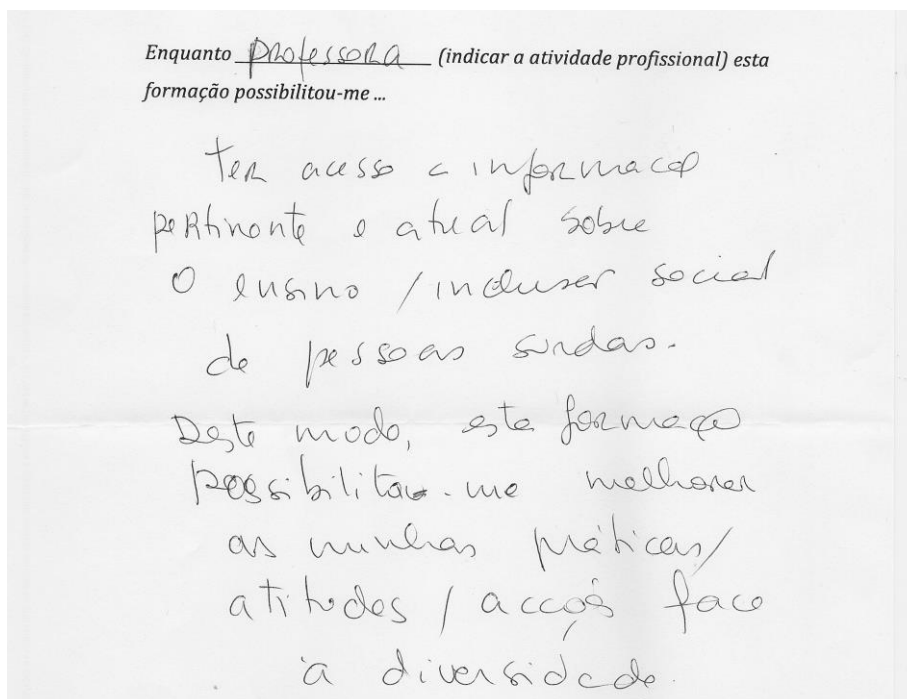 Enquanto professora (indicar a atividade profissional) esta
formação possibilitou-me ...
ter acesso a informação
pertinente e atual sobre
o ensino / inclusão social
de pessoas surdas.
Deste modo, esta formação
possibilitou-me melhorar
as minhas práticas/
atitudes / acções face
à diversidade